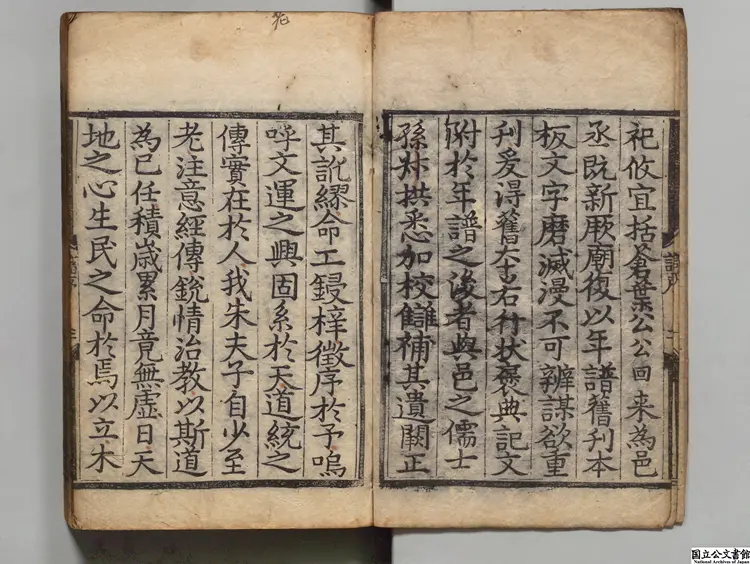 祀攸宜括蒼葉公公回来為邑
丞既新厥廟復以年譜舊刊本
板文字磨滅漫不可辨謀欲重
刊爰淂舊夲右行状褒典記文
附於年譜之後者與邑之儒士
孫叔拱悉加校讎補其遺闕正
其訛繆命工鋟梓徵序於予嗚
呼文運之興固系於天道統之
傳實在於人我朱夫子自少至
老注意經傳銳情治教以斯道
為已任積歳累月竟無虛日天
地之心生民之命於焉以立木
国立公文書館
National Archives of Japan